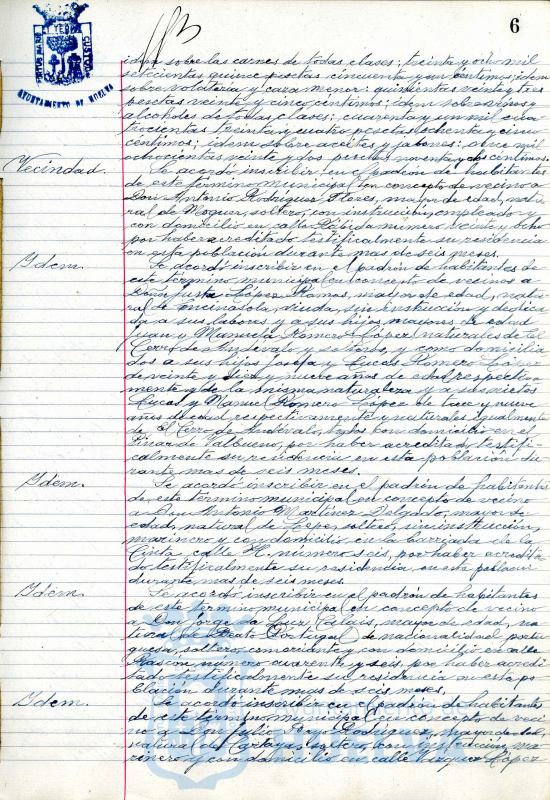 6
AYUNTAMIENTO DE HUELVA
idem sobre las carnes de todas clases: treinta y ocho mil
setecientas quince pesetas cincuenta y un centimos; idem
sobre volateria y caza menor: quinientas veinte y tres
pesetas veinte y cinco centimos; idem sobre vinos y
alcoholes de todas clases: cuarenta y un mil cua
trocientas treinta y cuatro pesetas ochenta y cinco
centimos; idem sobre aceites y jabones: once mil
ochocientas veinte y dos pesetas noventa y dos centimos.
Vecindad.
Se acordó inscribir en el padrón de habitantes
de este término municipal en concepto de vecino a
Don Antonio Rodriguez Flores, mayor de edad, natu
ral de Moguer, soltero, con instrucción, empleado y
con domicilio en calle Rábida número veinte y ocho
por haber acreditado testificalmente su residencia
en esta población durante mas de seis meses.
Idem.
Se acordó inscribir en el padrón de habitantes de
este término municipal en concepto de vecinos a
Doña Justa López Ramos, mayor de edad, natu
ral de Encinasola, viuda, sin instrucción y dedica
da a sus labores y a sus hijos mayores de edad
Juan y Manuela Romero López naturales de El
Cerro de Andévalo y solteros, y como domicilia
dos a sus hijos Josefa y Lucas Romero
de veinte y nueve años de edad respectiva
mente y de la misma naturaleza y a sus nietos
Lucas y Manuel Romero López de trece y nueve
años de edad respectivamente y naturales igualmente
de El Cerro de Andévalo, todos con domicilio en el
Pinar de Valbueno, por haber acreditado testifi
calmente su residencia en esta población du
rante mas de seis meses.
Idem.
Se acordó inscribir en el padrón de habitantes
de este término municipal en concepto de vecino
a Don Antonio Martinez Delgado, mayor de
edad, natural de Lepe, soltero, sin instrucción,
marinero y con domicilio en la barriada de la
Cinta, calle H. número seis, por haber acredita
do testificalmente su residencia en esta población
durante mas de seis meses.
Idem.
Se acordó inscribir en el padrón de habitantes
de este término municipal en concepto de vecino
a Don Jorge la Cruz Calais, mayor de edad, na
tural de (Portugal) de nacionalidad portu
guesa, soltero, comerciante y con domicilio en calle
Rascón número cuarenta y seis, por haber acredi
tado testificalmente su residencia en esta po
blación durante mas de seis meses.
Idem.
Se acordó inscribir en el padrón de habitantes
de este término municipal en concepto de veci
no a Don Julio Rodriguez, mayor de edad,
natural de Cartaya, soltero, con instrucción, ma
rinero y con domicilio en calle Vázquez López